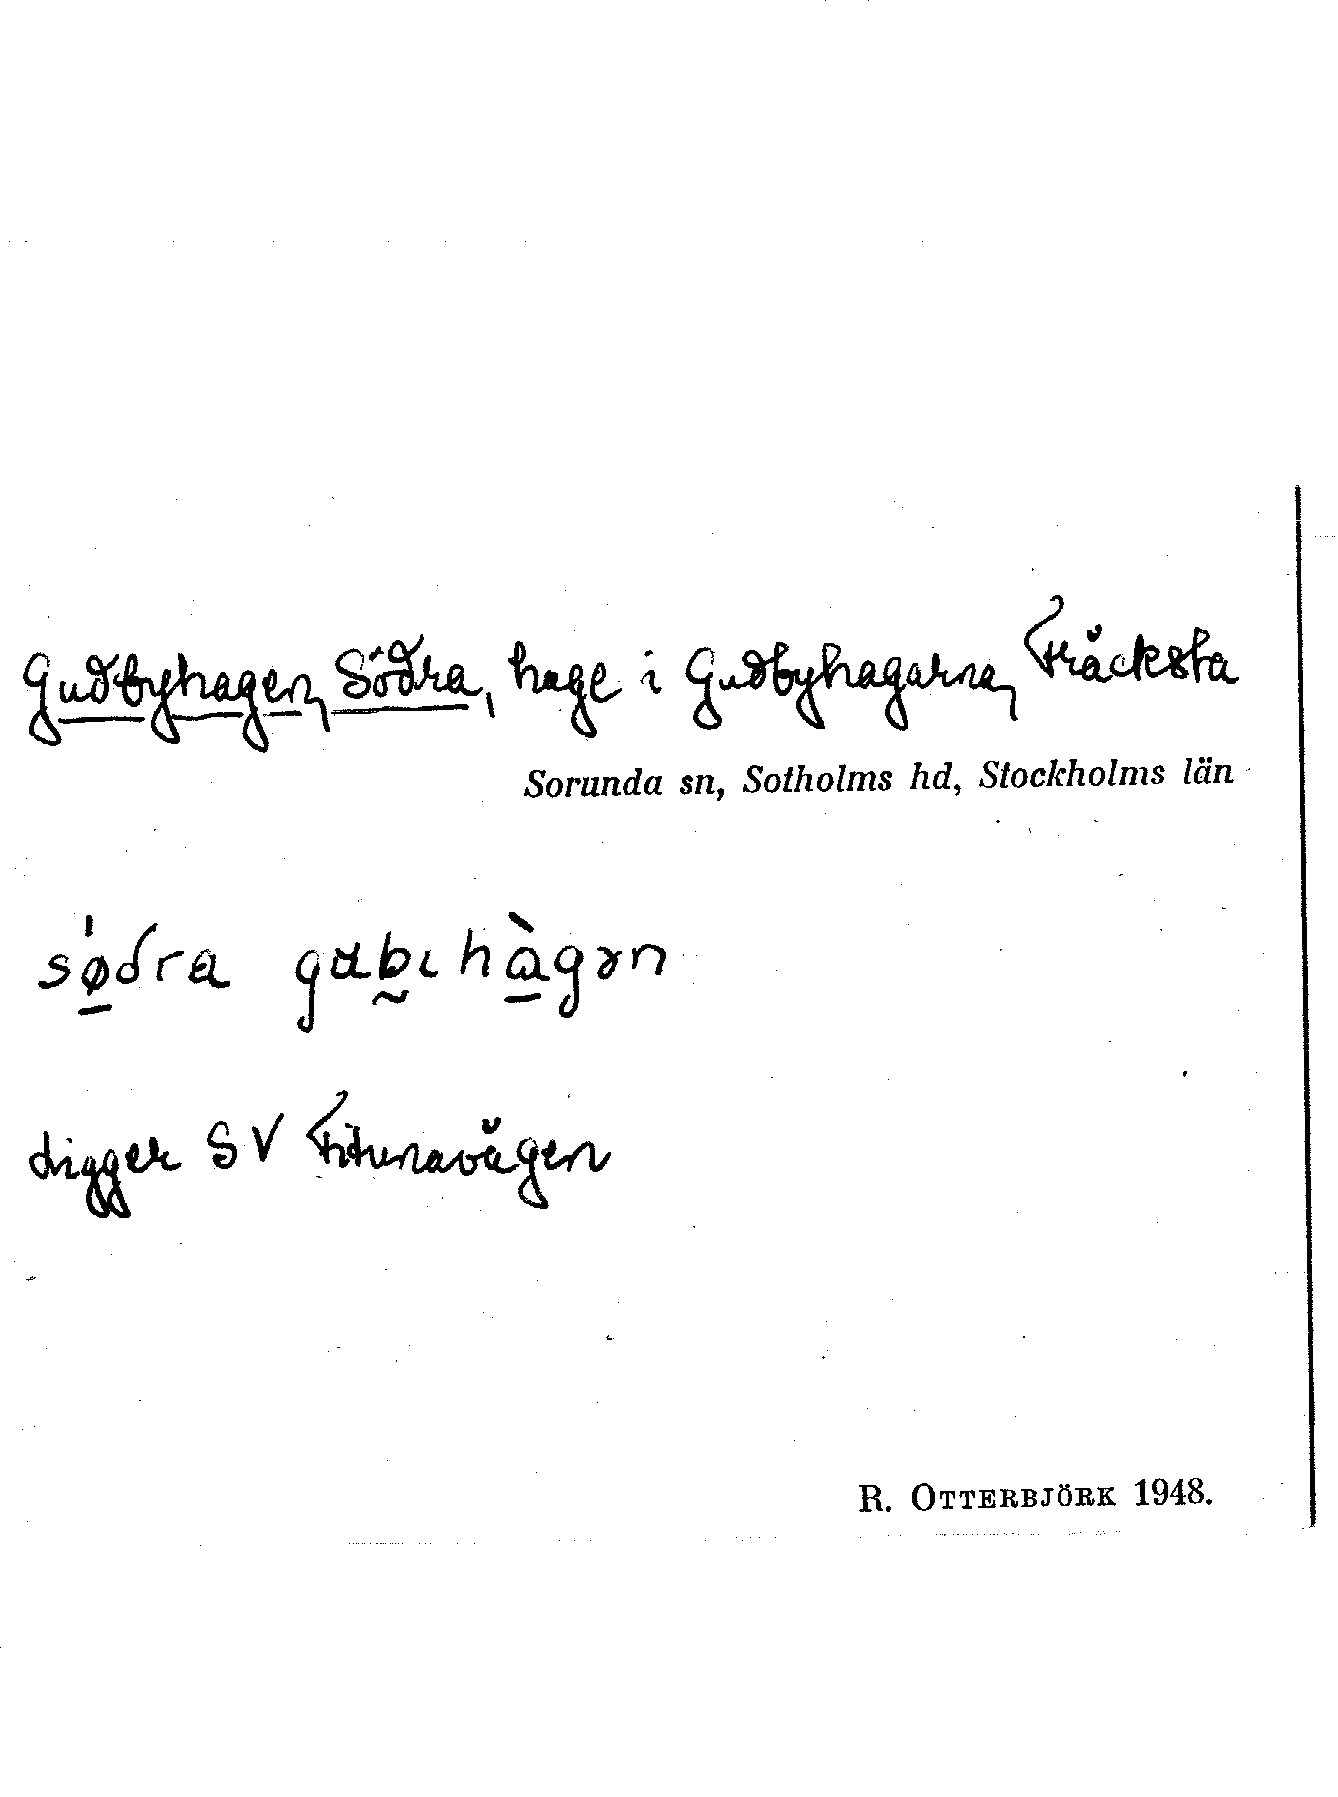 Gudbyhagen, Södra, hage i Gudbyhagarna, Fräcksta
Sorunda sn, Sotholms hd, Stockholms län
sǿ̱dra gub̰ɩhà̱gən
Ligger SV Fitunavägen
R. OTTERBJÖRK 1948.